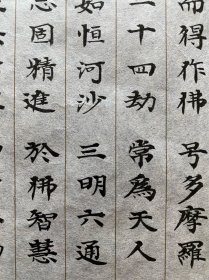 而得作佛 号多摩羅
二十四劫 常爲天人
如恒河沙 三明六通
志固精進 於佛智慧